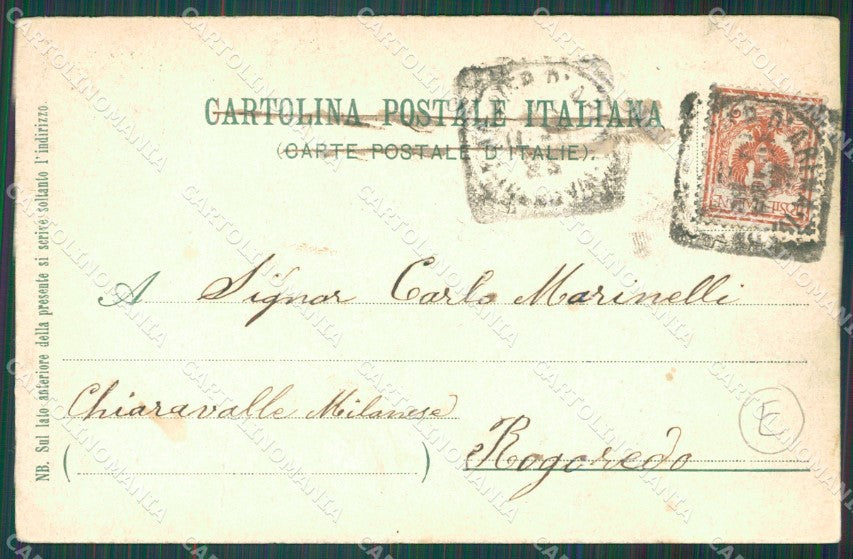 CARTOLINA POSTALE ITALIANA
(CARTE POSTALE D'ITALIE).
NB. Sul lato anteriore della presente si scrive soltanto l'indirizzo.
A Signor Carlo Marinelli
Chiaravalle Milanese
Rogoredo
CARTOLINOMANIA